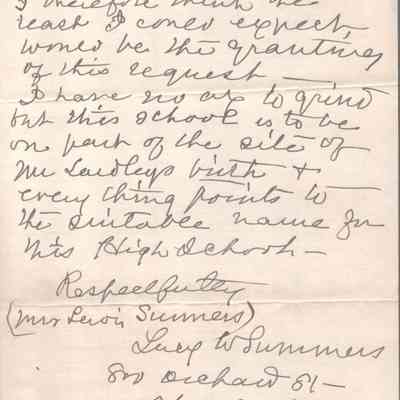 I therefore think the
least I could expect
would be the granting
of this request —
I have no ax to grind
but this school is to be
on part of the site of
Mr Laidleys birth &
every thing points to
the suitable name for
this High School —
Respectfully
(Mrs Lewis Summers)
Lucy W Summers
800 Orchard St —